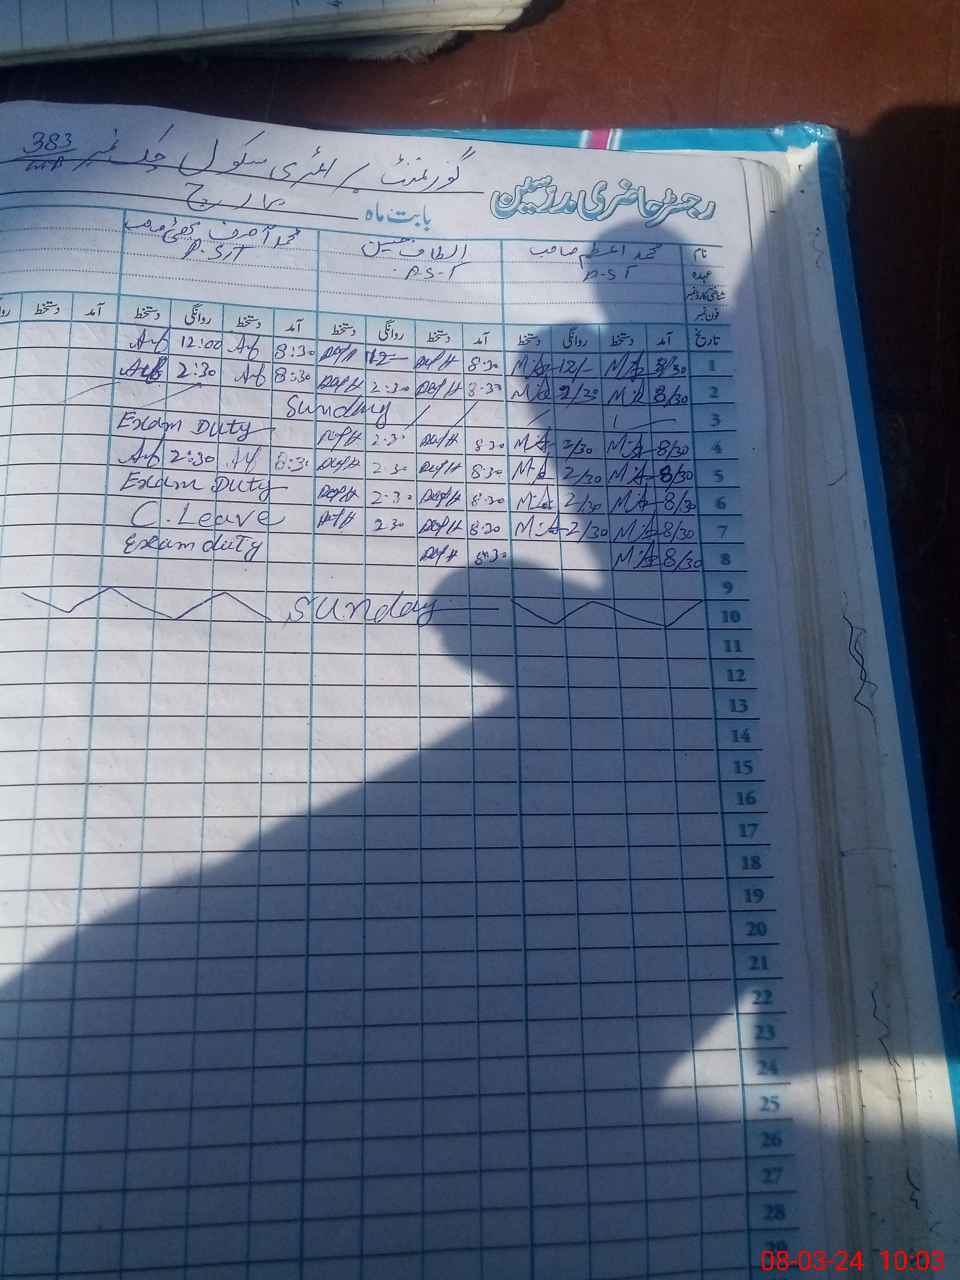 گورنمنٹ پرائمری سکول چک نمبر 383
رجسٹر حاضری مدرسین بابت ماہ مارچ
نام محمد اعظم صاحب الطاف حسین محمد آصف
عہدہ P.S.T P.S.T P.S.T
شناختی کارڈ نمبر
فون نمبر
تاریخ آمد دستخط روانگی دستخط آمد دستخط روانگی دستخط آمد دستخط روانگی دستخط آمد دستخط
1 8/30 M.A 12/- M.A 8:30 12- 8:30 Asf 12:00 Asf
2 8/30 M.A 2/30 M.A 8:30 2:30 8:30 Asf 2:30 Asf
3 Sunday
4 8/30 M.A 2/30 M.A 8:30 2:30 Exam Duty
5 8/30 M.A 2/30 M.A 8:30 2:30 8:30 Asf 2:30 Asf
6 8/30 M.A 2/30 M.A 8:30 2:30 Exam Duty
7 8/30 M.A 2/30 M.A 8:30 2:30 C. Leave
8 8/30 M.A 8:30 Exam duty
9
10 Sunday
11
12
13
14
15
16
17
18
19
20
21
22
23
24
25
26
27
28
29
08-03-24 10:03